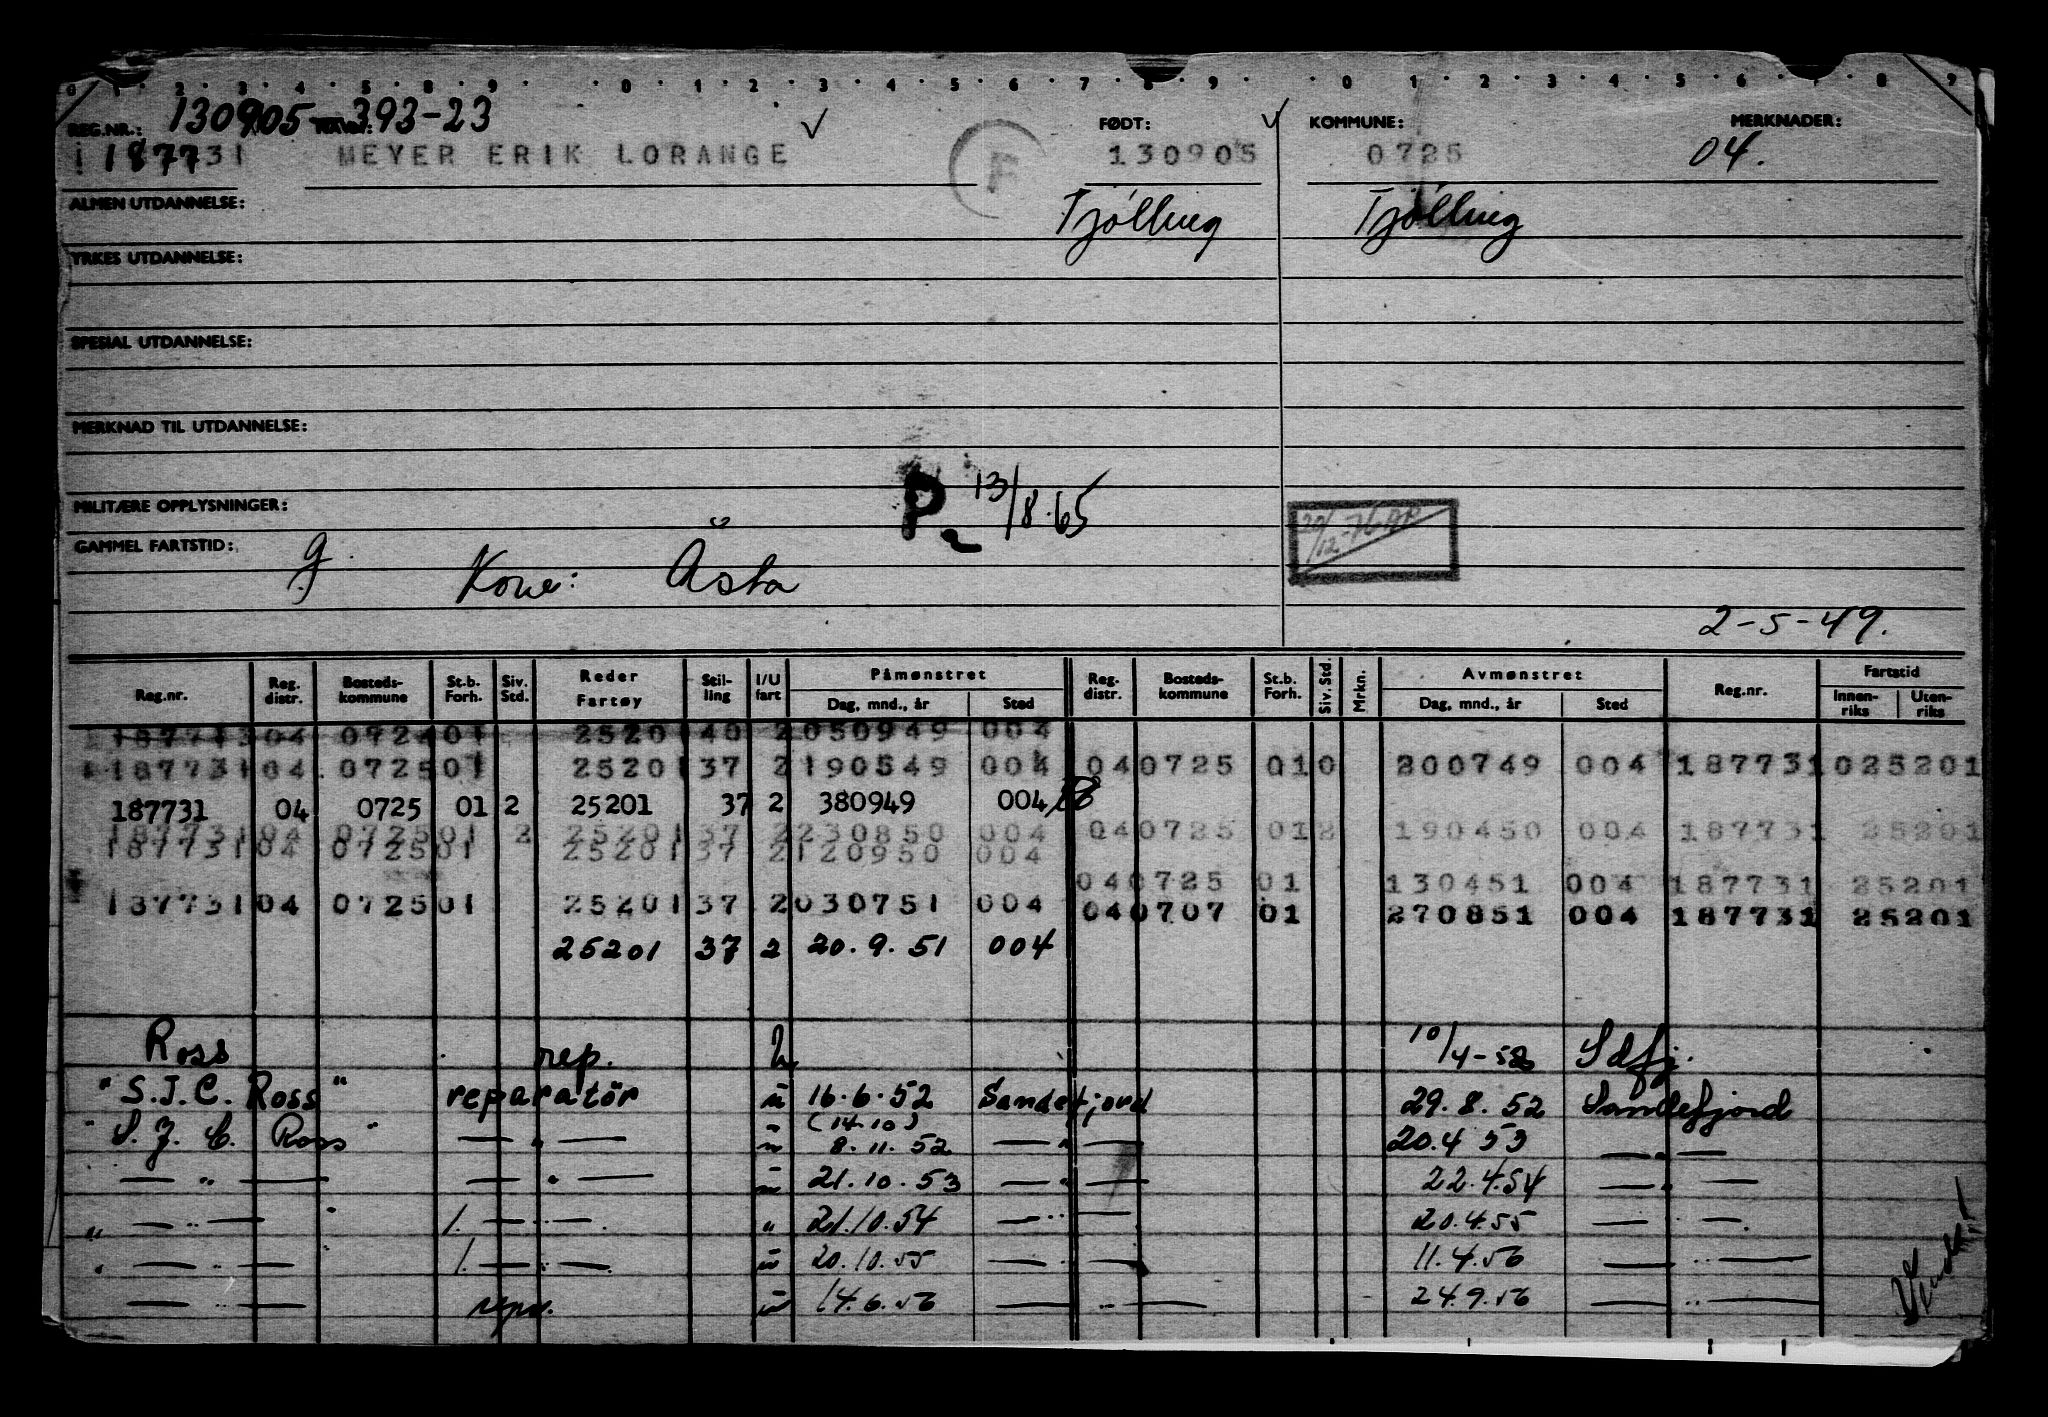 0 1 2 3 4 5 8 9 0 1 2 3 4 5 6 7 8 9 0 1 2 3 4 5 6 7 8 9
130905 393-23
REG.NR.: NAVN: FØDT: KOMMUNE: MERKNADER:
187731 MEYER ERIK LORANGE F 130905 0725 04.
ALMEN UTDANNELSE: Tjölling Tjölling
YRKES UTDANNELSE:
SPESIAL UTDANNELSE:
MERKNAD TIL UTDANNELSE:
MILITÆRE OPPLYSNINGER: P 13/8.65
20/12-76
GAMMEL FARTSTID: g. Kone: Åsta
2-5-49.
Reg.nr. Reg. distr. Bosteds-kommune St.b. Forh. Siv. Std. Reder Fartøy Stil-ling I/U fart Påmønstret Dag, mnd., år Sted Reg. distr. Bosteds-kommune St.b. Forh. Siv. Std. Mrkn. Avmønstret Dag, mnd., år Sted Reg.nr. Fartstid Innen-riks Uten-riks
04 072 01 25201 40 2 050949 004
187731 04 0725 01 25201 37 2 190549 004 04 0725 01 0 200749 004 187731 025201
187731 04 0725 01 2 25201 37 2 380949 004
187731 04 0725 01 2 25201 37 2 230850 004 04 0725 01 2 190450 004 187731 25201
187731 04 0725 01 25201 37 2 120950 004
04 0725 01 130451 004 187731 25201
187731 04 0725 01 25201 37 2 030751 004 04 0707 01 270851 004 187731 25201
25201 37 2 20.9.51 004
Ross rep. 10/4-52 Sdfj.
"S.J.C. Ross" reparatör u 16.6.52 Sandefjord 29.8.52 Sandefjord
"S.J.C. Ross" — " — " (14.10) 8.11.52 — " — 20.4 53 — " —
— " — — " — " 21.10.53 — " — 22.4.54 — " —
" — " — " /. — " —. " 21.10.54 — " — 20.4.55 — " —.
" — " — /. — " —. " 20.10.55 — " — 11.4.56 — " —
— " — " 14.6.56 — " — 24.9.56 — " —